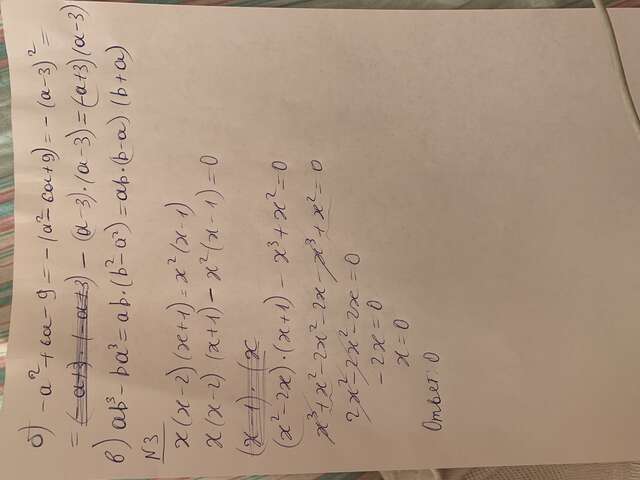 б) -a² + 6a - 9 = -(a² - 6a + 9) = -(a-3)² =
= - (a-3)·(a-3) = (-a+3)(a-3)
в) ab³ - ba³ = ab·(b² - a²) = ab·(b-a)(b+a)
N3
x(x-2)(x+1) = x²(x-1)
x(x-2)(x+1) - x²(x-1) = 0
(x-1)·(x
(x²-2x)·(x+1) - x³ + x² = 0
x³ + x² - 2x² - 2x - x³ + x² = 0
2x² - 2x² - 2x = 0
-2x = 0
x = 0
Ответ: 0